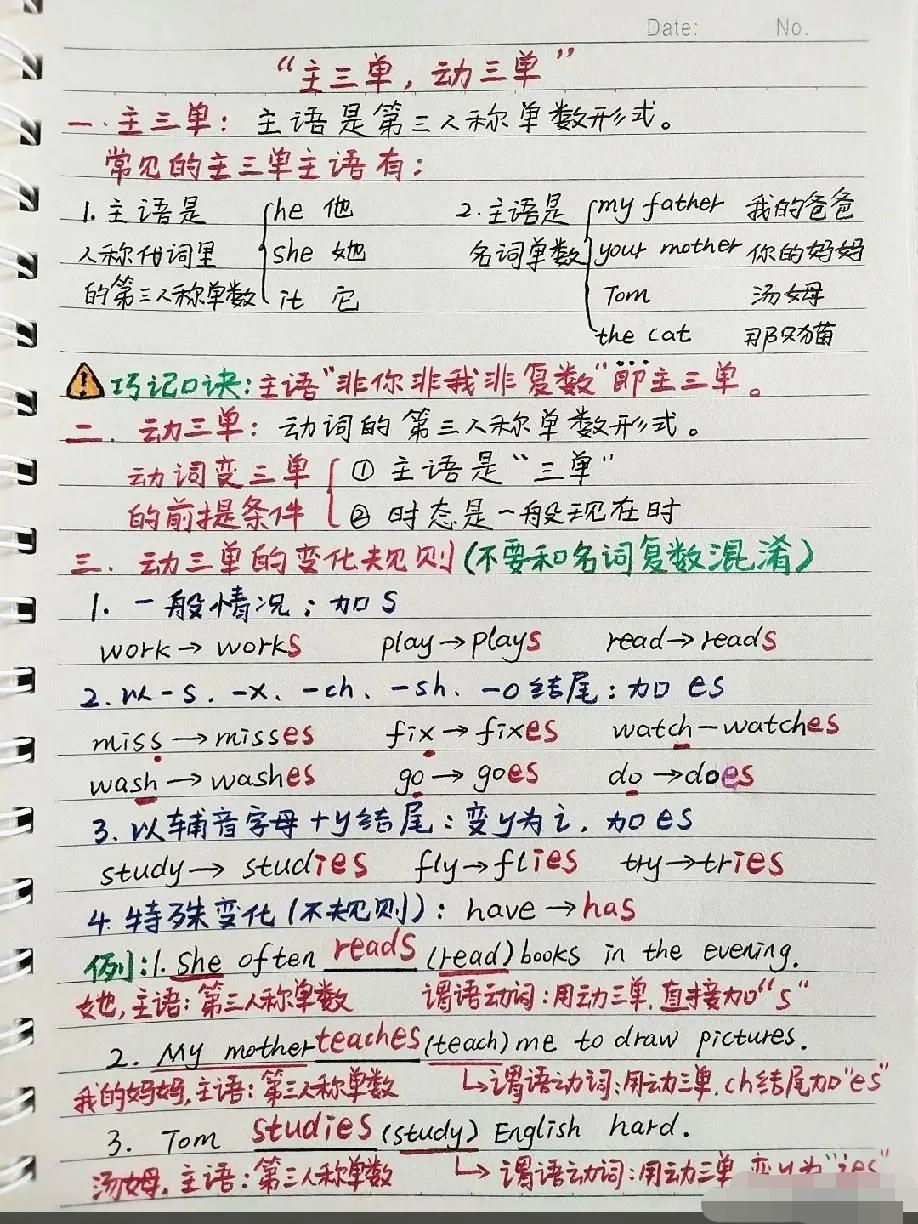 Date: No.
“主三单，动三单”
一. 主三单：主语是第三人称单数形式。
常见的主三单主语有：
1. 主语是 he 他 2. 主语是 my father 我的爸爸
人称代词里 she 她 名词单数 your mother 你的妈妈
的第三人称单数 it 它 Tom 汤姆
the cat 那只猫
巧记口诀：主语“非你非我非复数”即主三单。
二. 动三单：动词的第三人称单数形式。
动词变三单 ① 主语是“三单”
的前提条件 ② 时态是一般现在时
三. 动三单的变化规则(不要和名词复数混淆)
1. 一般情况：加s
work→works play→plays read→reads
2. 以-s、-x、-ch、-sh、-o结尾：加es
miss→misses fix→fixes watch-watches
wash→washes go→goes do→does
3. 以辅音字母+y结尾：变y为i，加es
study→studies fly→flies try→tries
4. 特殊变化(不规则)：have→has
例：1. She often reads (read) books in the evening.
她，主语：第三人称单数 谓语动词：用动三单，直接加“s”
2. My mother teaches (teach) me to draw pictures.
我的妈妈，主语：第三人称单数 ↳谓语动词：用动三单，ch结尾加“es”
3. Tom studies (study) English hard.
汤姆，主语：第三人称单数 ↳谓语动词：用动三单 变y为“ies”